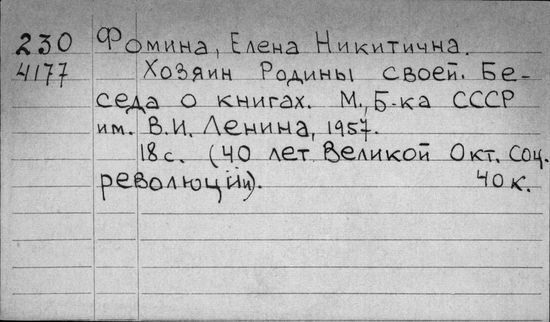 230 Фомина, Елена Никитична.
4177 Хозяин Родины своей. Бе-
седа о книгах. М., Б-ка СССР
им. В.И. Ленина, 1957.
18 с. (40 лет Великой Окт. Соц.
революции). 40 к.